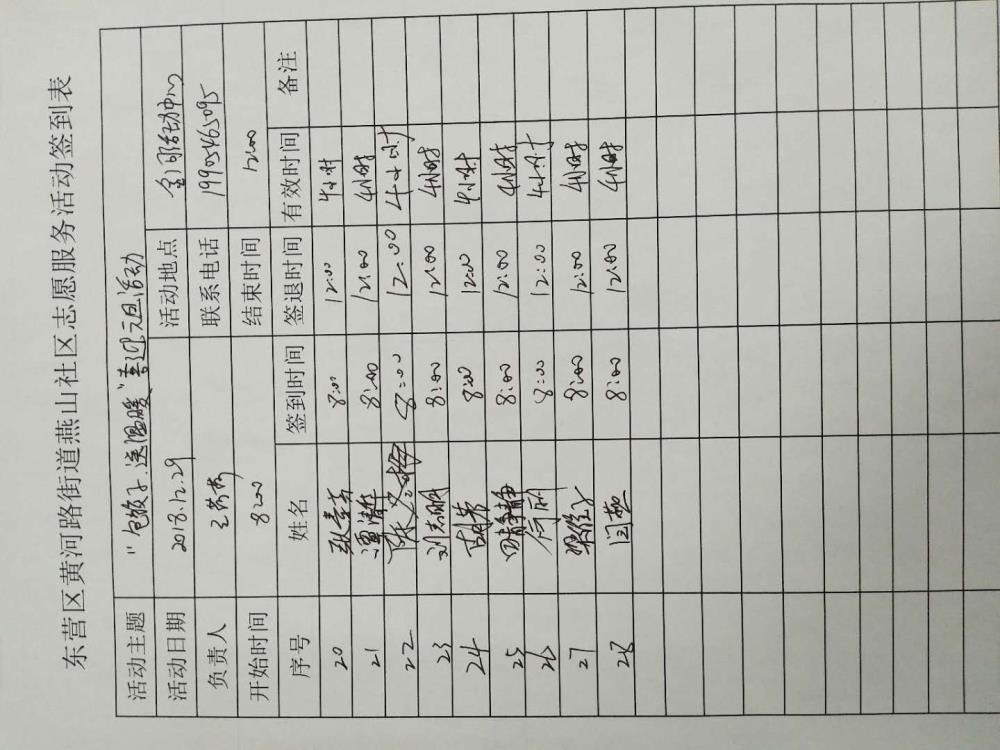 东营区黄河路街道燕山社区志愿服务活动签到表
活动主题 "包饺子.送温暖"喜迎元旦活动
活动日期 2018.12.29 活动地点 活动中心
负责人 联系电话 19905465095
开始时间 8:00 结束时间 12:00
序号 姓名 签到时间 签退时间 有效时间 备注
20 8:00 12:00 4小时
21 谭潇 8:00 12:00 4小时
22 8:00 12:00 4小时
23 刘志明 8:00 12:00 4小时
24 胡芳 8:00 12:00 4小时
25 田静静 8:00 12:00 4小时
26 何丽 8:00 12:00 4小时
27 8:00 12:00 4小时
28 闫艳 8:00 12:00 4小时